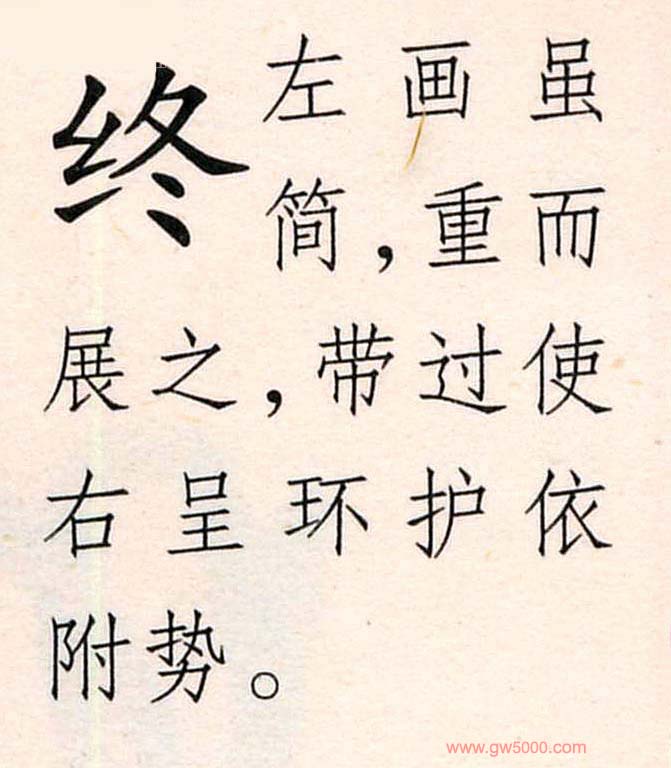 终
左画虽
简,重而
展之,带过使
右呈环护依
附势。
www.gw5000.com